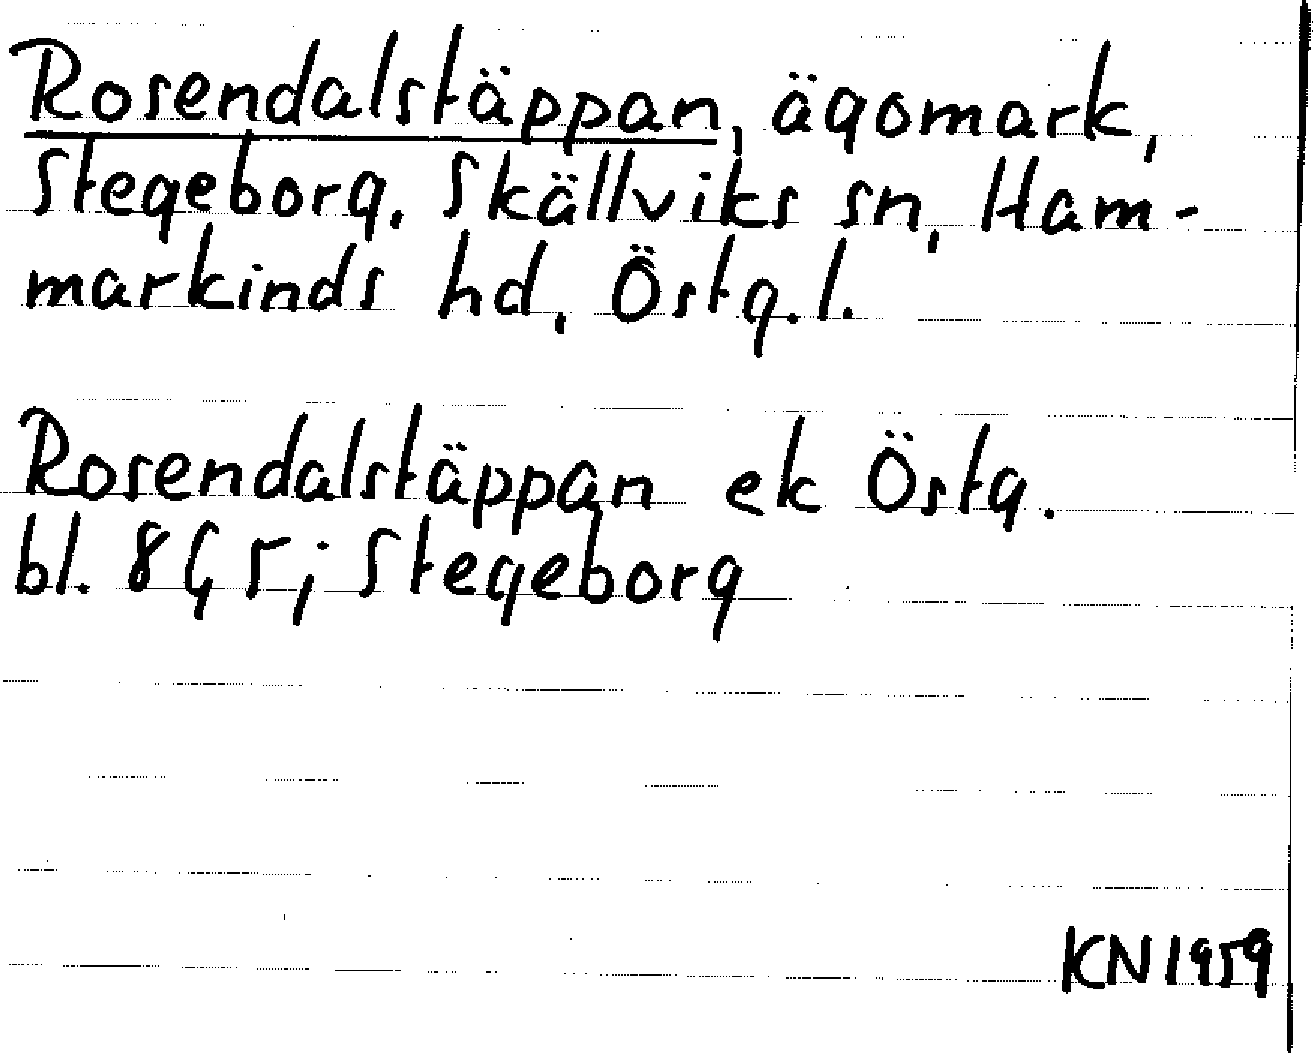 Rosendalstäppan, ägomark,
Stegeborg, Skällviks sn, Ham-
markinds hd, Östg. l.
Rosendalstäppan ek Östg.
bl. 8 G 5; Stegeborg
KN 1959